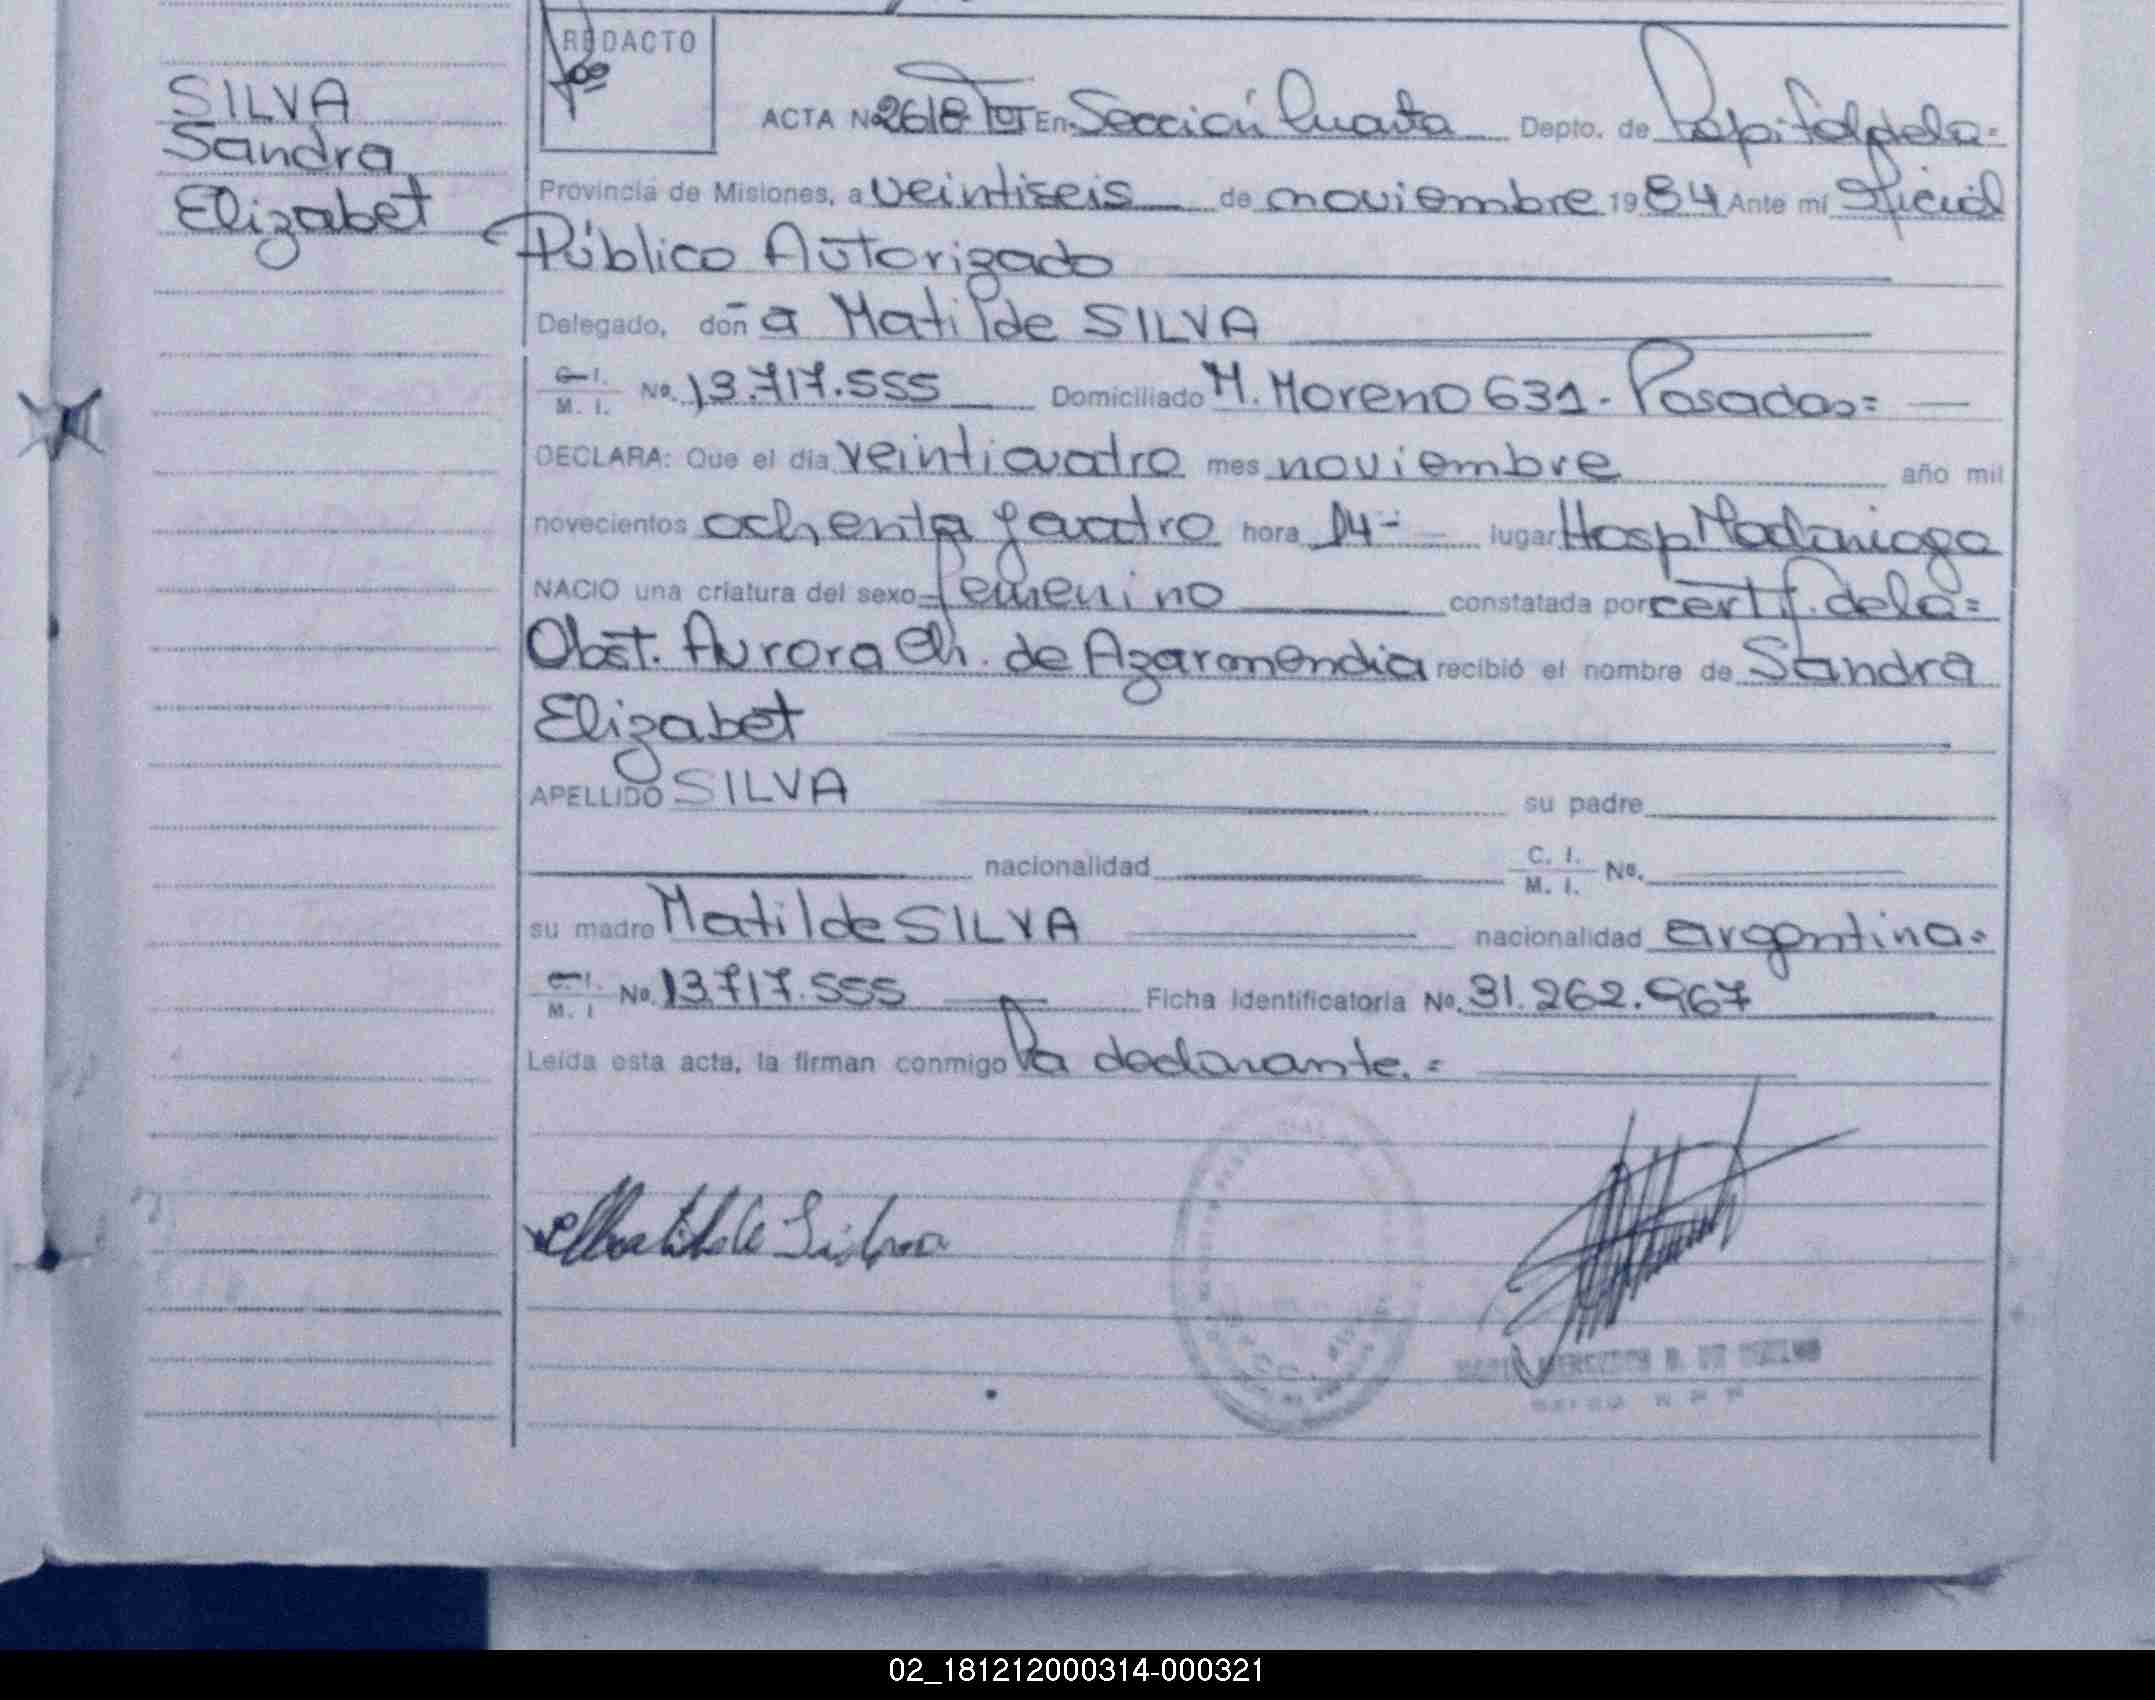 SILVA
Sandra
Elizabet
REDACTO
ACTA Nº 2618 - TºI En Sección Cuarta Depto. de Capital de la=
Provincia de Misiones, a veintiseis de noviembre 1984 Ante mí Oficial
Público Autorizado
Delegado, don a Matilde SILVA
C. I. M. I. No. 13.717.555 Domiciliado M. Moreno 631- Posadas=
DECLARA: Que el día veinticuatro mes noviembre año mil
novecientos ochenta y cuatro hora 14- lugar Hosp Madariaga
NACIO una criatura del sexo femenino constatada por certif. de la=
Obst. Aurora Ch. de Azarmendia recibió el nombre de Sandra
Elizabet
APELLIDO SILVA su padre
nacionalidad C. I. M. I. No.
su madre Matilde SILVA nacionalidad argentina=
C. I. M. I No. 13.717.555 Ficha Identificatoria No. 31.262.967
Leída esta acta, la firman conmigo la declarante.=
Matilde Silva
02_181212000314-000321